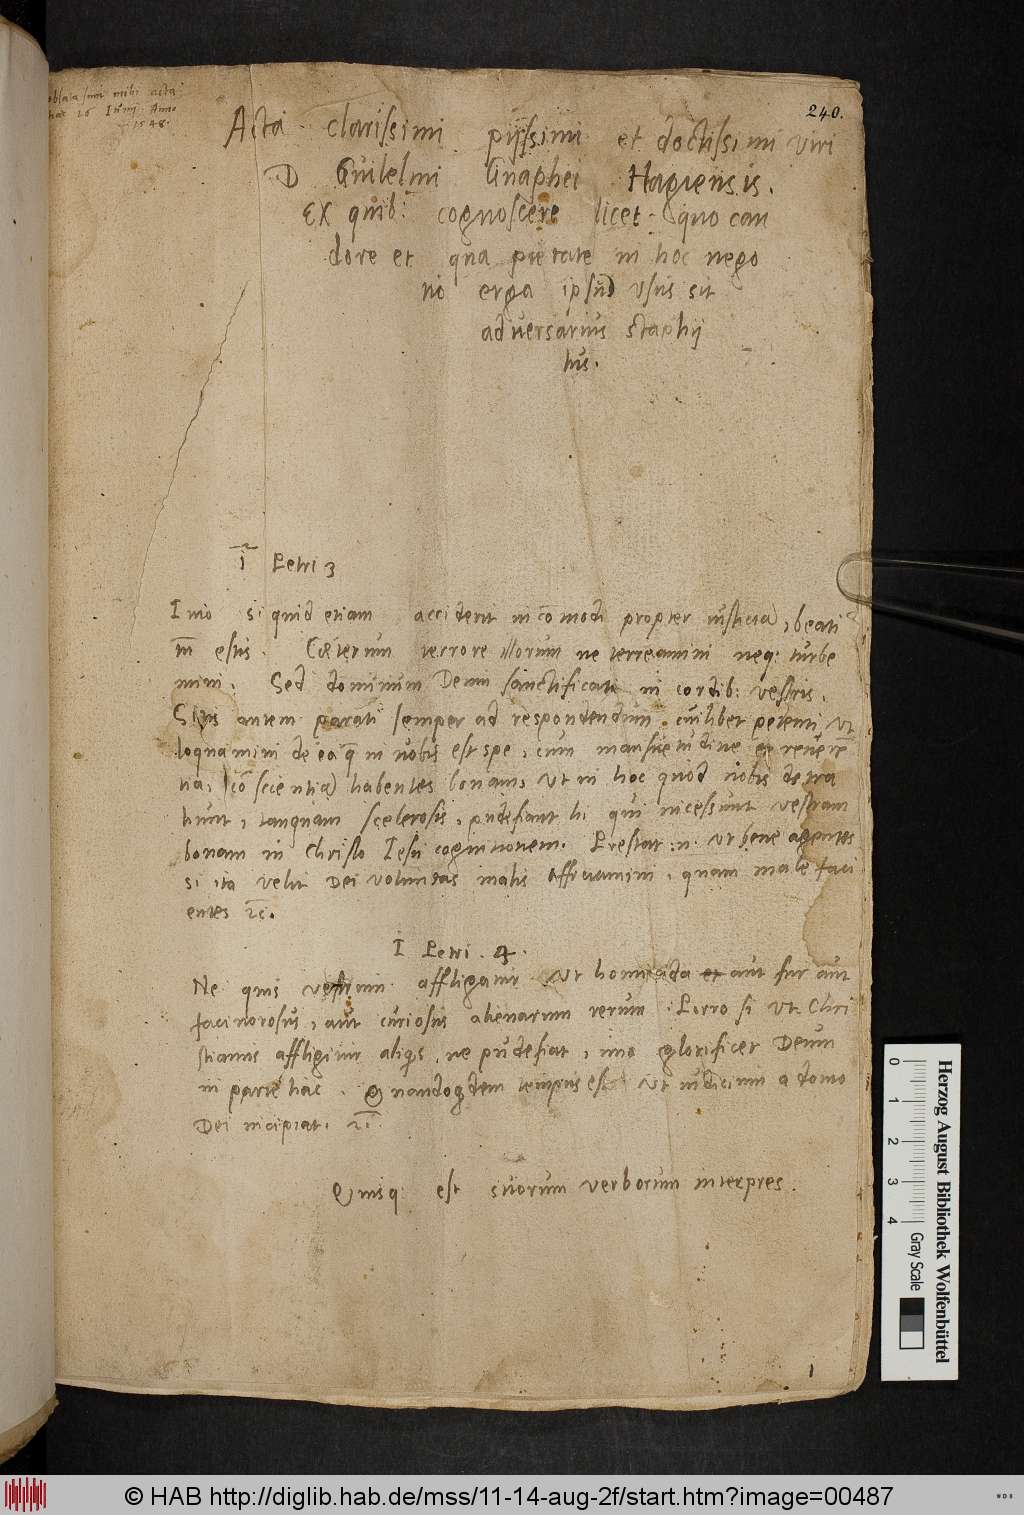 oblata sunt mihi acta
haec 26 Iunij Anno
1548.
240.
Acta clarissimi pijssimi et doctissimi viri
D Guilelmi Gnaphei Hagiensis.
Ex quib: cognoscere licet quo can
dore et qua pietate in hoc nego
tio erga ipsum vsus sit
adversarius staphy
lus.
i Petri 3
Imo si quid etiam acciderit incōmodi propter iusticiā, beati
tn̄ estis. Cæterum terrore illorum ne terreamini neq: turbe
mini. Sed dominum Deum sanctificate in cordib: vestris.
Sitis autem parati semper ad respondendum cuilibet petenti vt
loquamini de ea q̄ in vobis est spe, cum mansuetudine et reverē
tia, cōscientiā habentes bonam, vt in hoc quod vobis detra
hunt, tanquam scelerosis, pudefiant hi qui incessunt vestram
bonam in Christo Iesu cognitionem. Prestat .n. vt bene agentes
si ita velit Dei voluntas malis afficiamini, quam male faci
entes ꝛc̄.
I Petri . 4 .
Ne quis vestrum affligatur vt homicida et aut fur aut
facinorosus, aut curiosus alienarum rerum. Porro si vt Chri
stianus affligitur aliquis, ne pudefiat, imo glorificet Deum
in parte hac. Quandoquidem tempus est vt iudicium a domo
Dei incipiat. ꝛc̄.
Quisq est suorum verborum interpres.
1
Herzog August Bibliothek Wolfenbüttel
0 1 2 3 4 Gray Scale
© HAB http://diglib.hab.de/mss/11-14-aug-2f/start.htm?image=00487